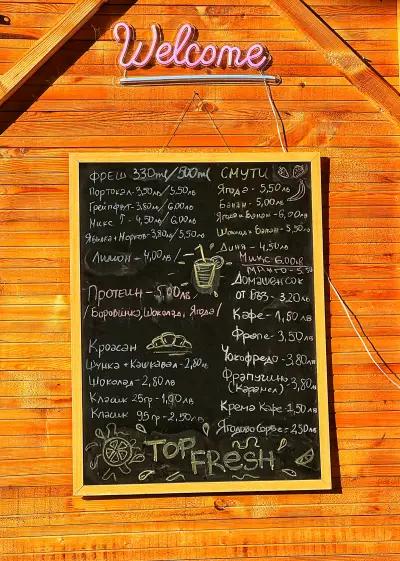 Welcome
ФРЕШ 330ml/500ml
Портокал - 3,50лв/5,50лв
Грейпфут - 3,80лв/6,00лв
Микс - 4,50лв/6,00лв
Ябълка + Морков - 3,80лв/5,50лв
Лимон - 4,00лв/
Протеин - 5,00лв
/Боровинка, Шоколад, Ягода/
Кроасан
Шунка + Кашкавал - 2,80лв
Шоколад - 2,80лв
Класик 25гр - 1,90лв
Класик 95гр - 2,50лв
СМУТИ
Ягода - 5,50лв
Банан - 5,00лв
Ягода и Банан - 6,00лв
Шоколад и Банан - 5,50лв
Диня - 4,50лв
Микс 6.00лв
МАНГО - 5,50
Домашен сок
от Бъз - 3,20лв
Кафе - 1,50лв
Фрапе - 3,50лв
Чокофредо - 3,80лв
Фрапучино - 3,80лв
(Карамел)
Крема Кафе - 1,50лв
Ягодово Сорбе - 2,50лв
TOP
FRESH